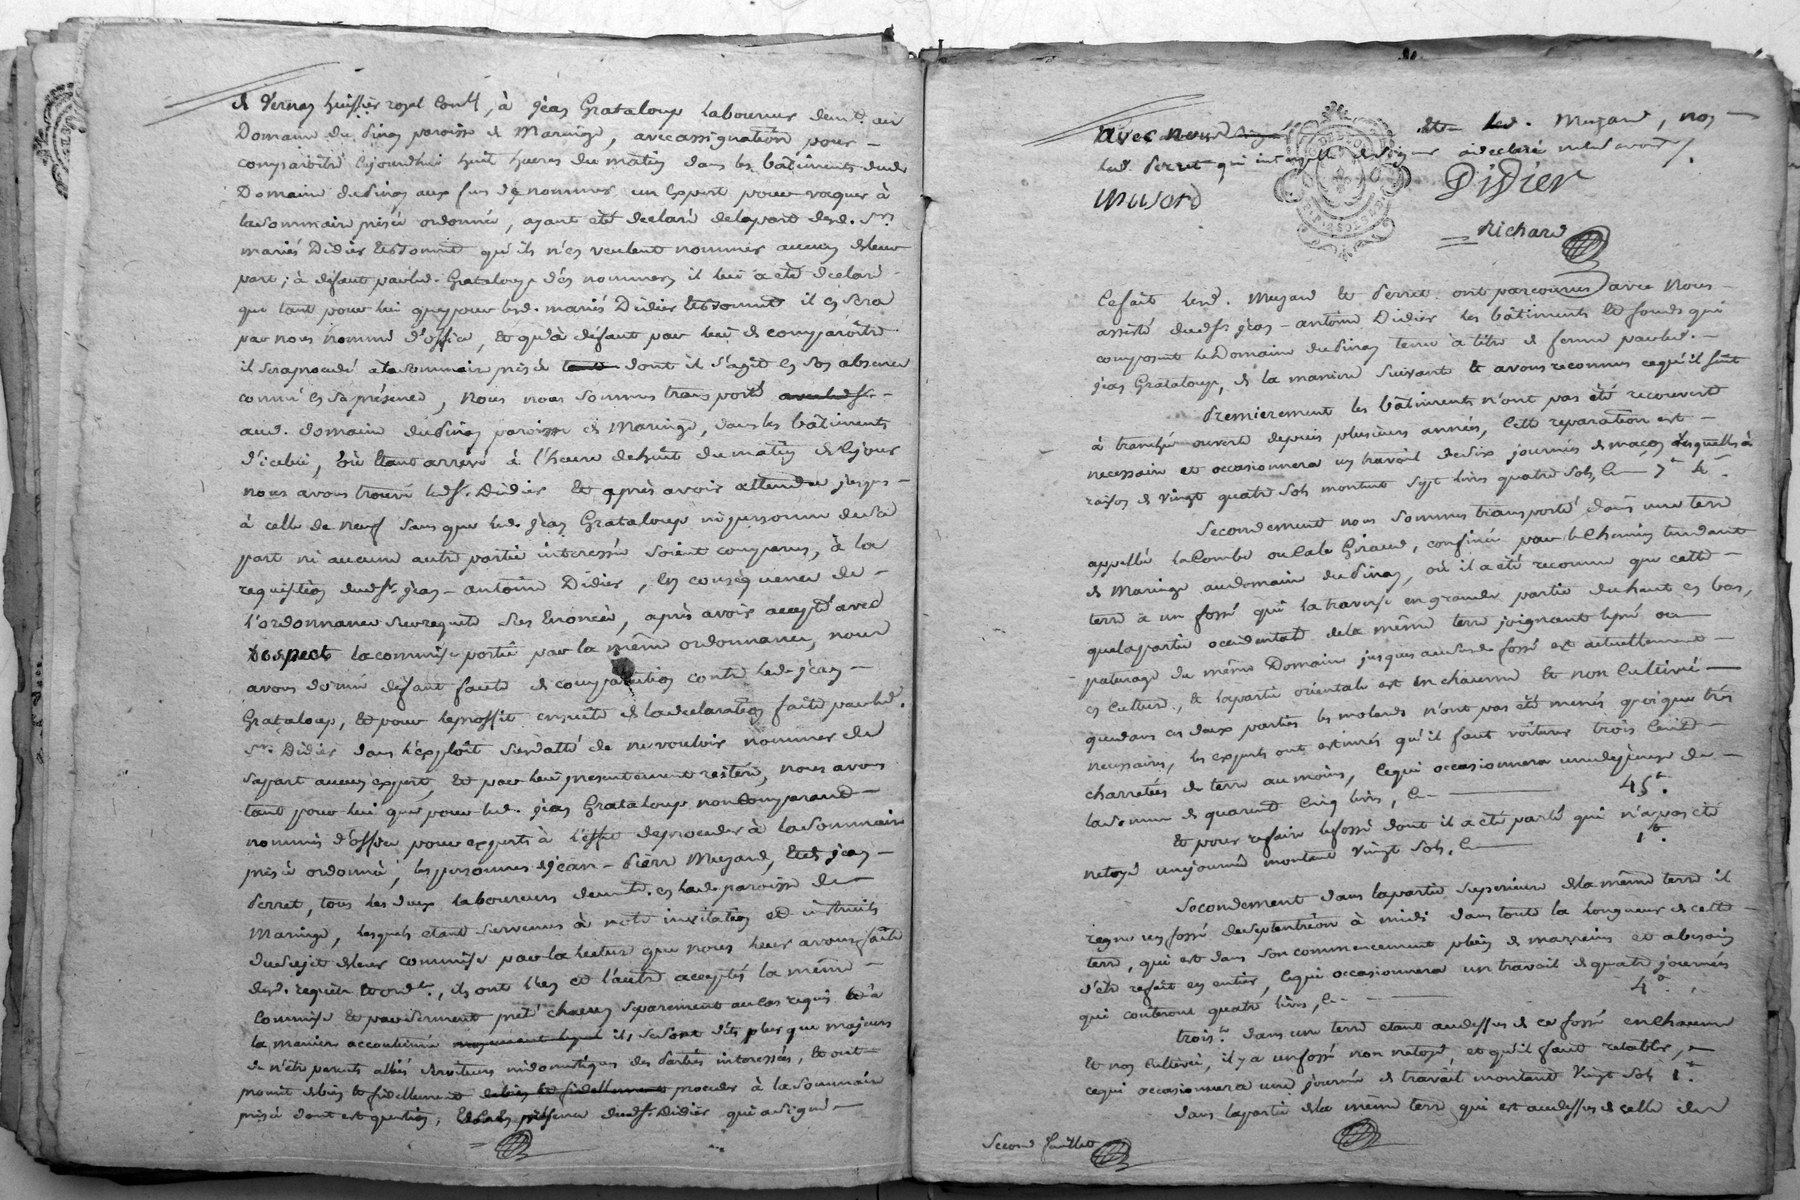 de Vernay huissier royal Contl, à jean Grataloup laboureur demt. au
Domaine du Pinay paroisse de Maringe, avec assignation pour
comparoitre cejourdhui huit heures du matin dans les bâtiments dudt
Domaine du Pinay aux fins de nommer un Expert pour vaquer à
la sommaire prisée ordonnée, ayant été declaré de la part desd. Srs
mariés Didier et qu'ils n'en veulent nommer aucun de leur
part; à défaut par led. Grataloup d'en nommer il lui a été declaré
que tant pour lui que pour lesd. mariés Didier il en sera
par nous nommé d'office, et qu'à défaut par lui de comparoitre
il sera procedé à la sommaire prisée dont il s'agit en son absence
comme en sa présence, nous nous sommes transporté
aud. domaine du Pinay paroisse de Maringe, dans les bâtiments
d'icelui, où étant arrivé à l'heure de huit du matin de ce jour
nous avons trouvé led. Sr. Didier et après avoir attendu jusques
à celle de neuf sans que led. jean Grataloup ni personne de sa
part ni aucune autre partie interessée soient comparus, à la
requisition dudt Sr. jean-antoine Didier, en consequence de
l'ordonnance sur requête sus énoncée, après avoir accepté avec
respect la commission portée par la même ordonnance, nous
avons donné défaut faute de comparution contre led. jean
Grataloup, et pour le proffit ensuite de la declaration faite par led.
Sr. Didier dans l'exploit susdatté de ne vouloir nommer de
sa part aucun expert, et par lui presentement reiteré, nous avons
tant pour lui que pour led. jean Grataloup non Comparant
nommés d'office pour experts à l'effet de proceder à la sommaire
prisée ordonnée, les personnes de jean-Pierre Muzard, et de jean
Perret, tous les deux laboureurs demt. en lad. paroisse de
Maringe, lesquels etant survenus à notre invitation et instruits
du sujet de leur commission par la lecture que nous leur avons faite
desd. requête et ordce., ils ont l'un et l'autre accepté la même
Commission et par serment prêté chacun separement au cas requis et à
la maniere accoutumée ils se sont dits plus que majeurs
de n'être parents alliés serviteurs ni domestiques des Parties interessées, et ont
promit de bien et fidellement proceder à la sommaire
prisée dont est question, et de la presence dudt Sr. Didier qui a signé
avec nous et led. Muzard, non
led. Perret qui interpellé de signer a declaré ne le savoir /.
Musard
Didier
Richard
Ce fait lesd. Muzard et Perret ont parcourus avec Nous
assisté dudt Sr jean-antoine Didier les bâtiments et fonds qui
composent le Domaine du Pinay tenu à titre de ferme par led.
jean Grataloup, de la maniere suivante et avons reconnus ce qu'il suit
Premierement les bâtiments n'ont pas été recouvert
à tranchée ouverte depuis plusieurs années, cette reparation est
necessaire et occasionnera un travail de six journées de maçon lesquelles à
raison de vingt quatre sols montent sept livres quatre sols, Cy 7# 4s
Secondement nous sommes transporté dans une terre
appellée la Combe ou Cale Giraud, confinée par le Chemin tendant
de Maringe au domaine du Pinay, où il a été reconnu que cette
terre a un fossé qui la traverse en grande partie du haut en bas,
que la partie occidentale de la même terre joignant le pré ou
paturage du même Domaine jusques aud. fossé est actuellement
en culture, et la partie orientale est en chaume et non cultivée
que dans ces deux parties les molards n'ont pas été menés quoique très
necessaires, les experts ont estimés qu'il faut voiturer trois Cent
charretées de terre au moins, ce qui occasionnera une dépense de
la somme de quarante Cinq livres, Cy 45#.
Et pour refaire le fossé dont il a été parlé qui n'a pas été
netoyé une journée montant vingt sols, Cy 1#.
Secondement dans la partie superieure de la même terre il
regne un fossé de septentrion à midi dans toute la longueur de cette
terre, qui est dans son commencement plein de marreins et a besoin
d'être refait en entier, ce qui occasionnera un travail de quatre journées
qui couteront quatre livres, Cy 4#.
troist. dans une terre etant au dessus de ce fossé en chaume
et non cultivée, il y a un fossé non netoyé, et qu'il faut retablir,
ce qui occasionnera une journée de travail montant vingt sols 1#
dans la partie de la même terre qui est au dessus de celle de
Second feuillet